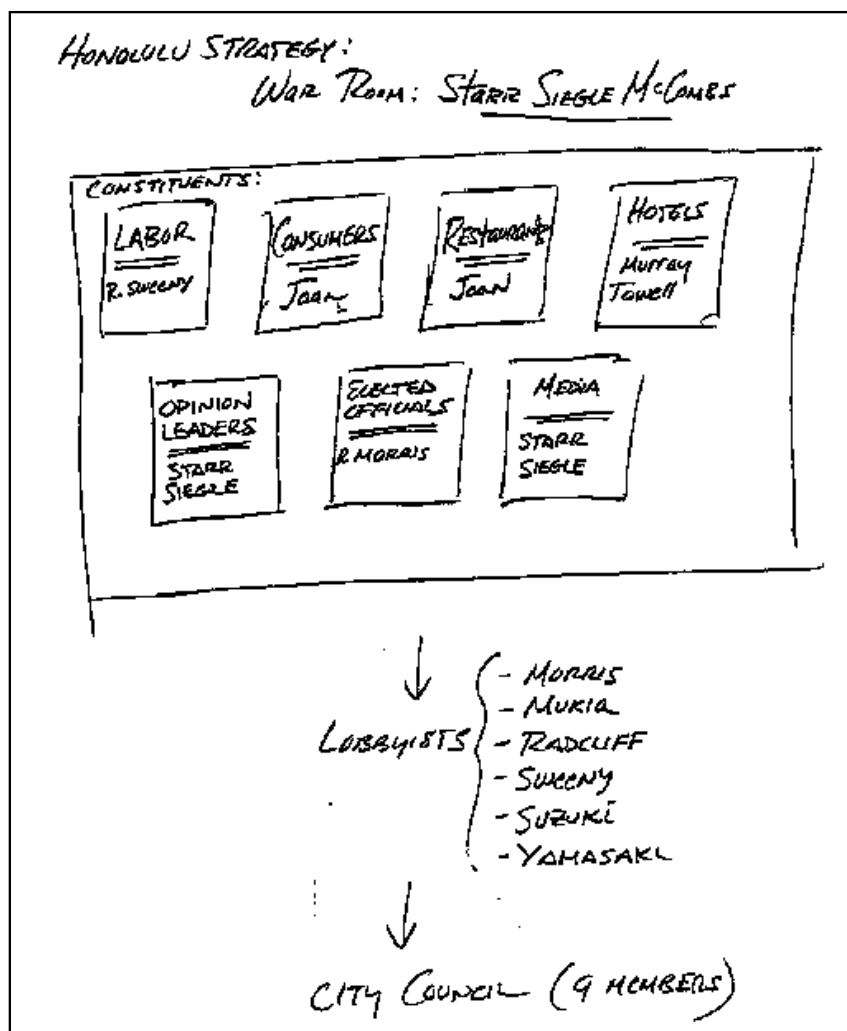 HONOLULU STRATEGY:
WAR ROOM: STARR SIEGLE McCOMBS
CONSTITUENTS:
LABOR
R. SWEENY
CONSUMERS
JOAN
RESTAURANTS
JOAN
HOTELS
MURRAY
TOWELL
OPINION
LEADERS
STARR
SIEGLE
ELECTED
OFFICIALS
R MORRIS
MEDIA
STARR
SIEGLE
LOBBYISTS
- MORRIS
- MUKIA
- RADCLIFF
- SWEENY
- SUZUKI
- YAMASAKI
CITY COUNCIL (9 MEMBERS)